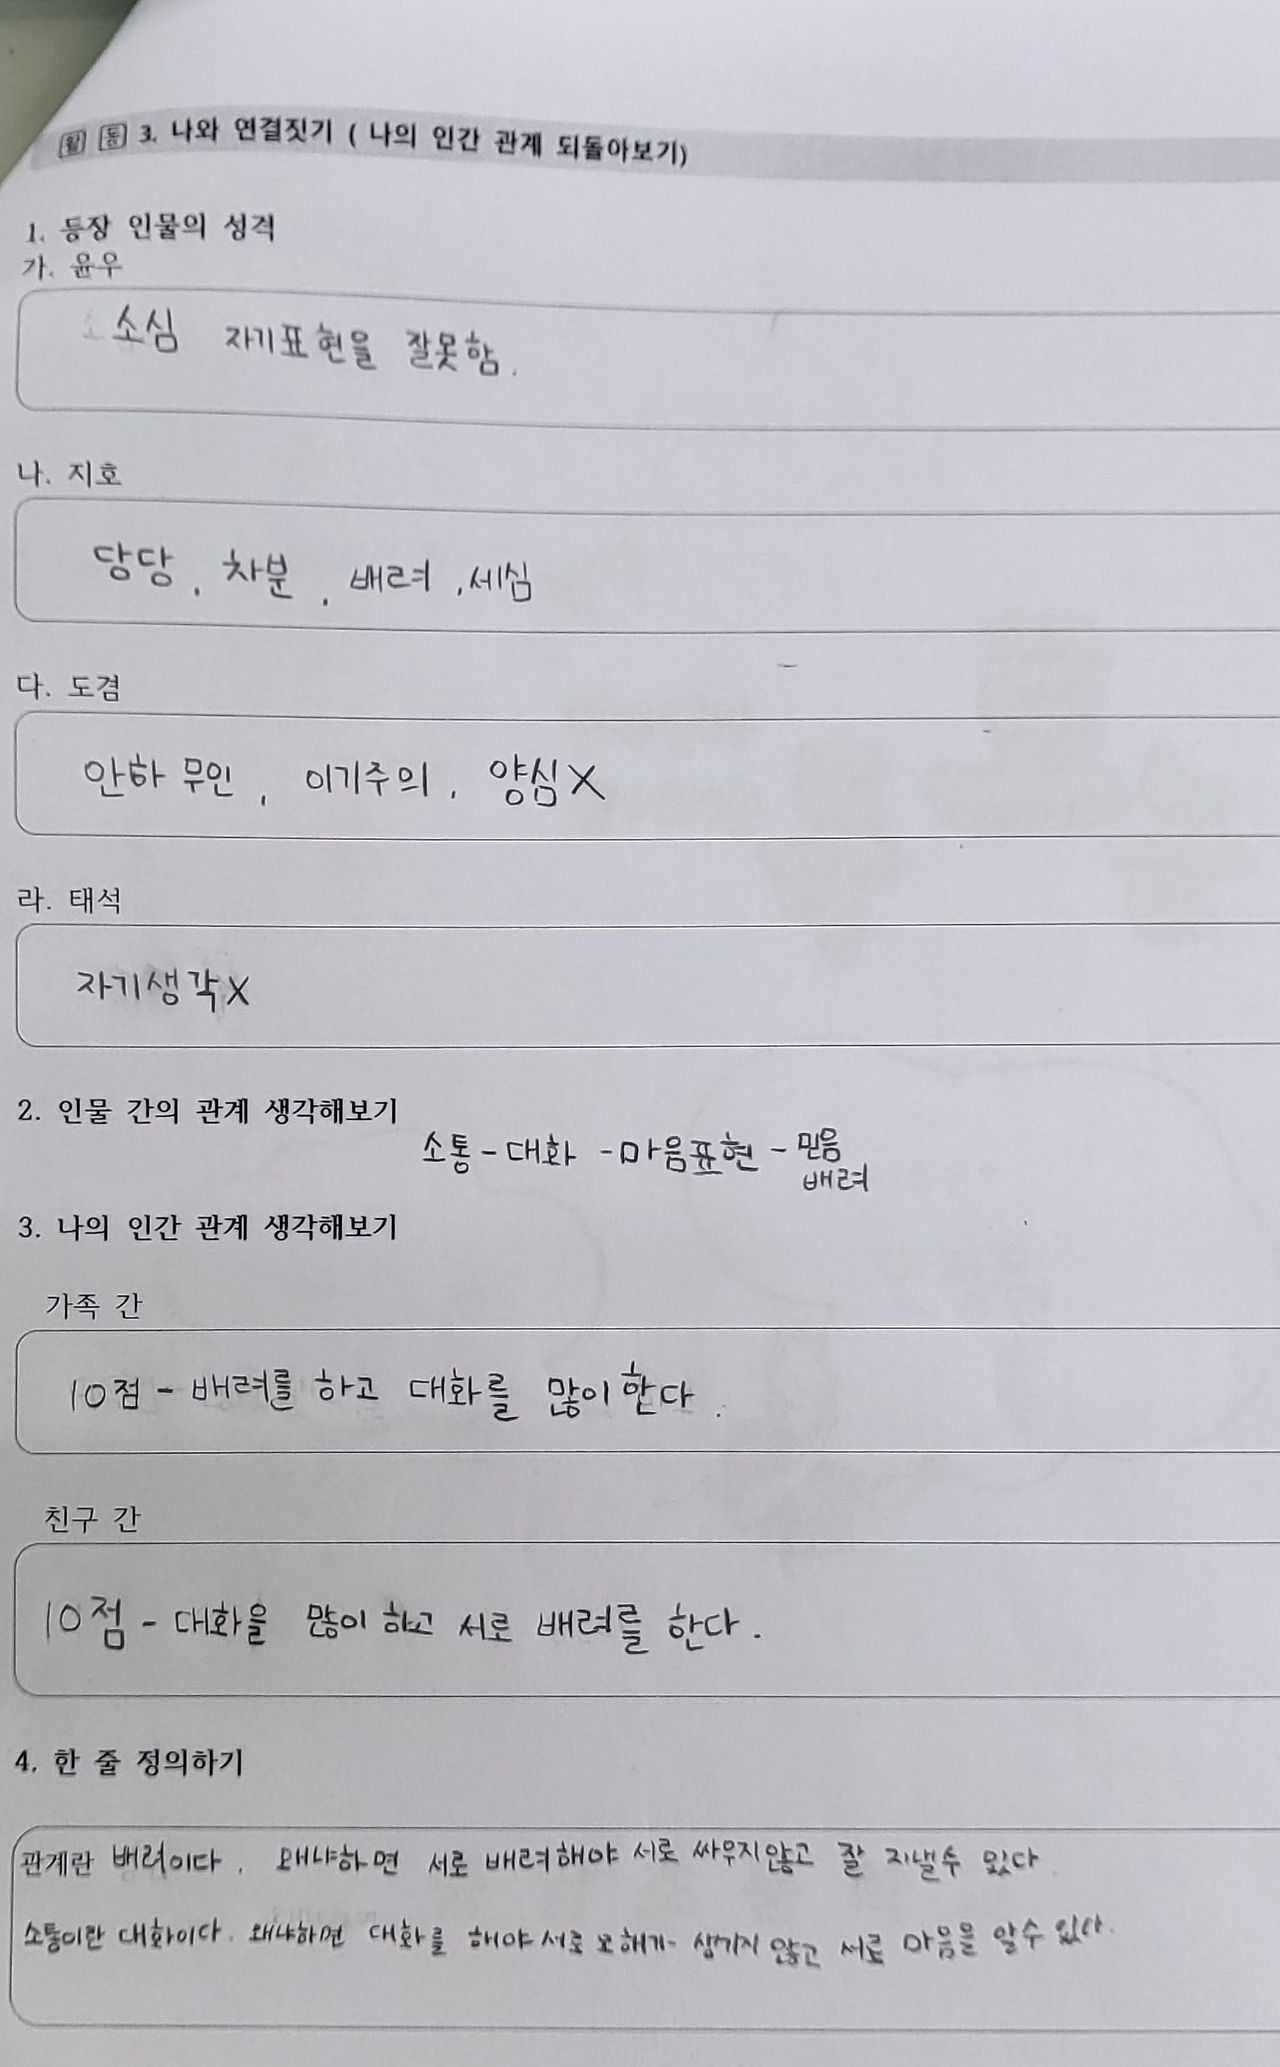 활동 3. 나와 연결짓기 ( 나의 인간 관계 되돌아보기)
1. 등장 인물의 성격
가. 윤우
소심 자기표현을 잘못함.
나. 지호
당당, 차분, 배려, 세심
다. 도겸
안하무인, 이기주의, 양심X
라. 태석
자기생각X
2. 인물 간의 관계 생각해보기
소통-대화-마음표현-믿음
배려
3. 나의 인간 관계 생각해보기
가족 간
10점 - 배려를 하고 대화를 많이 한다.
친구 간
10점 - 대화을 많이 하고 서로 배려를 한다.
4. 한 줄 정의하기
관계란 배려이다. 왜냐하면 서로 배려해야 서로 싸우지않고 잘 지낼수 있다
소통이란 대화이다. 왜냐하면 대화를 해야 서로 오해가 생기지 않고 서로 마음을 알수 있다.